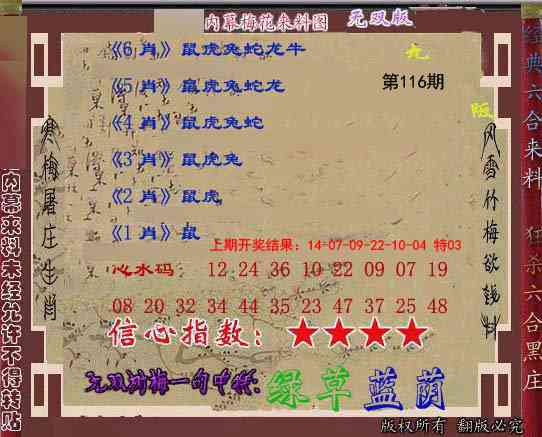 内幕梅花来料图 无双版
《6 肖》鼠虎兔蛇龙牛
《5 肖》鼠虎兔蛇龙
《4 肖》鼠虎兔蛇
《3 肖》鼠虎兔
《2 肖》鼠虎
《1 肖》鼠
九
第116期
阪
上期开奖结果：14-07-09-22-10-04 特03
心水码： 12 24 36 10 22 09 07 19
08 20 32 34 44 35 23 47 37 25 48
信心指数：★★★★
无双鸿梅一句中特：绿草蓝荫
寒梅屠庄生肖
风雪竹梅欲钱料
内幕来料未经允许不得转贴
经典六合来料
狂杀六合黑庄
版权所有 翻版必究